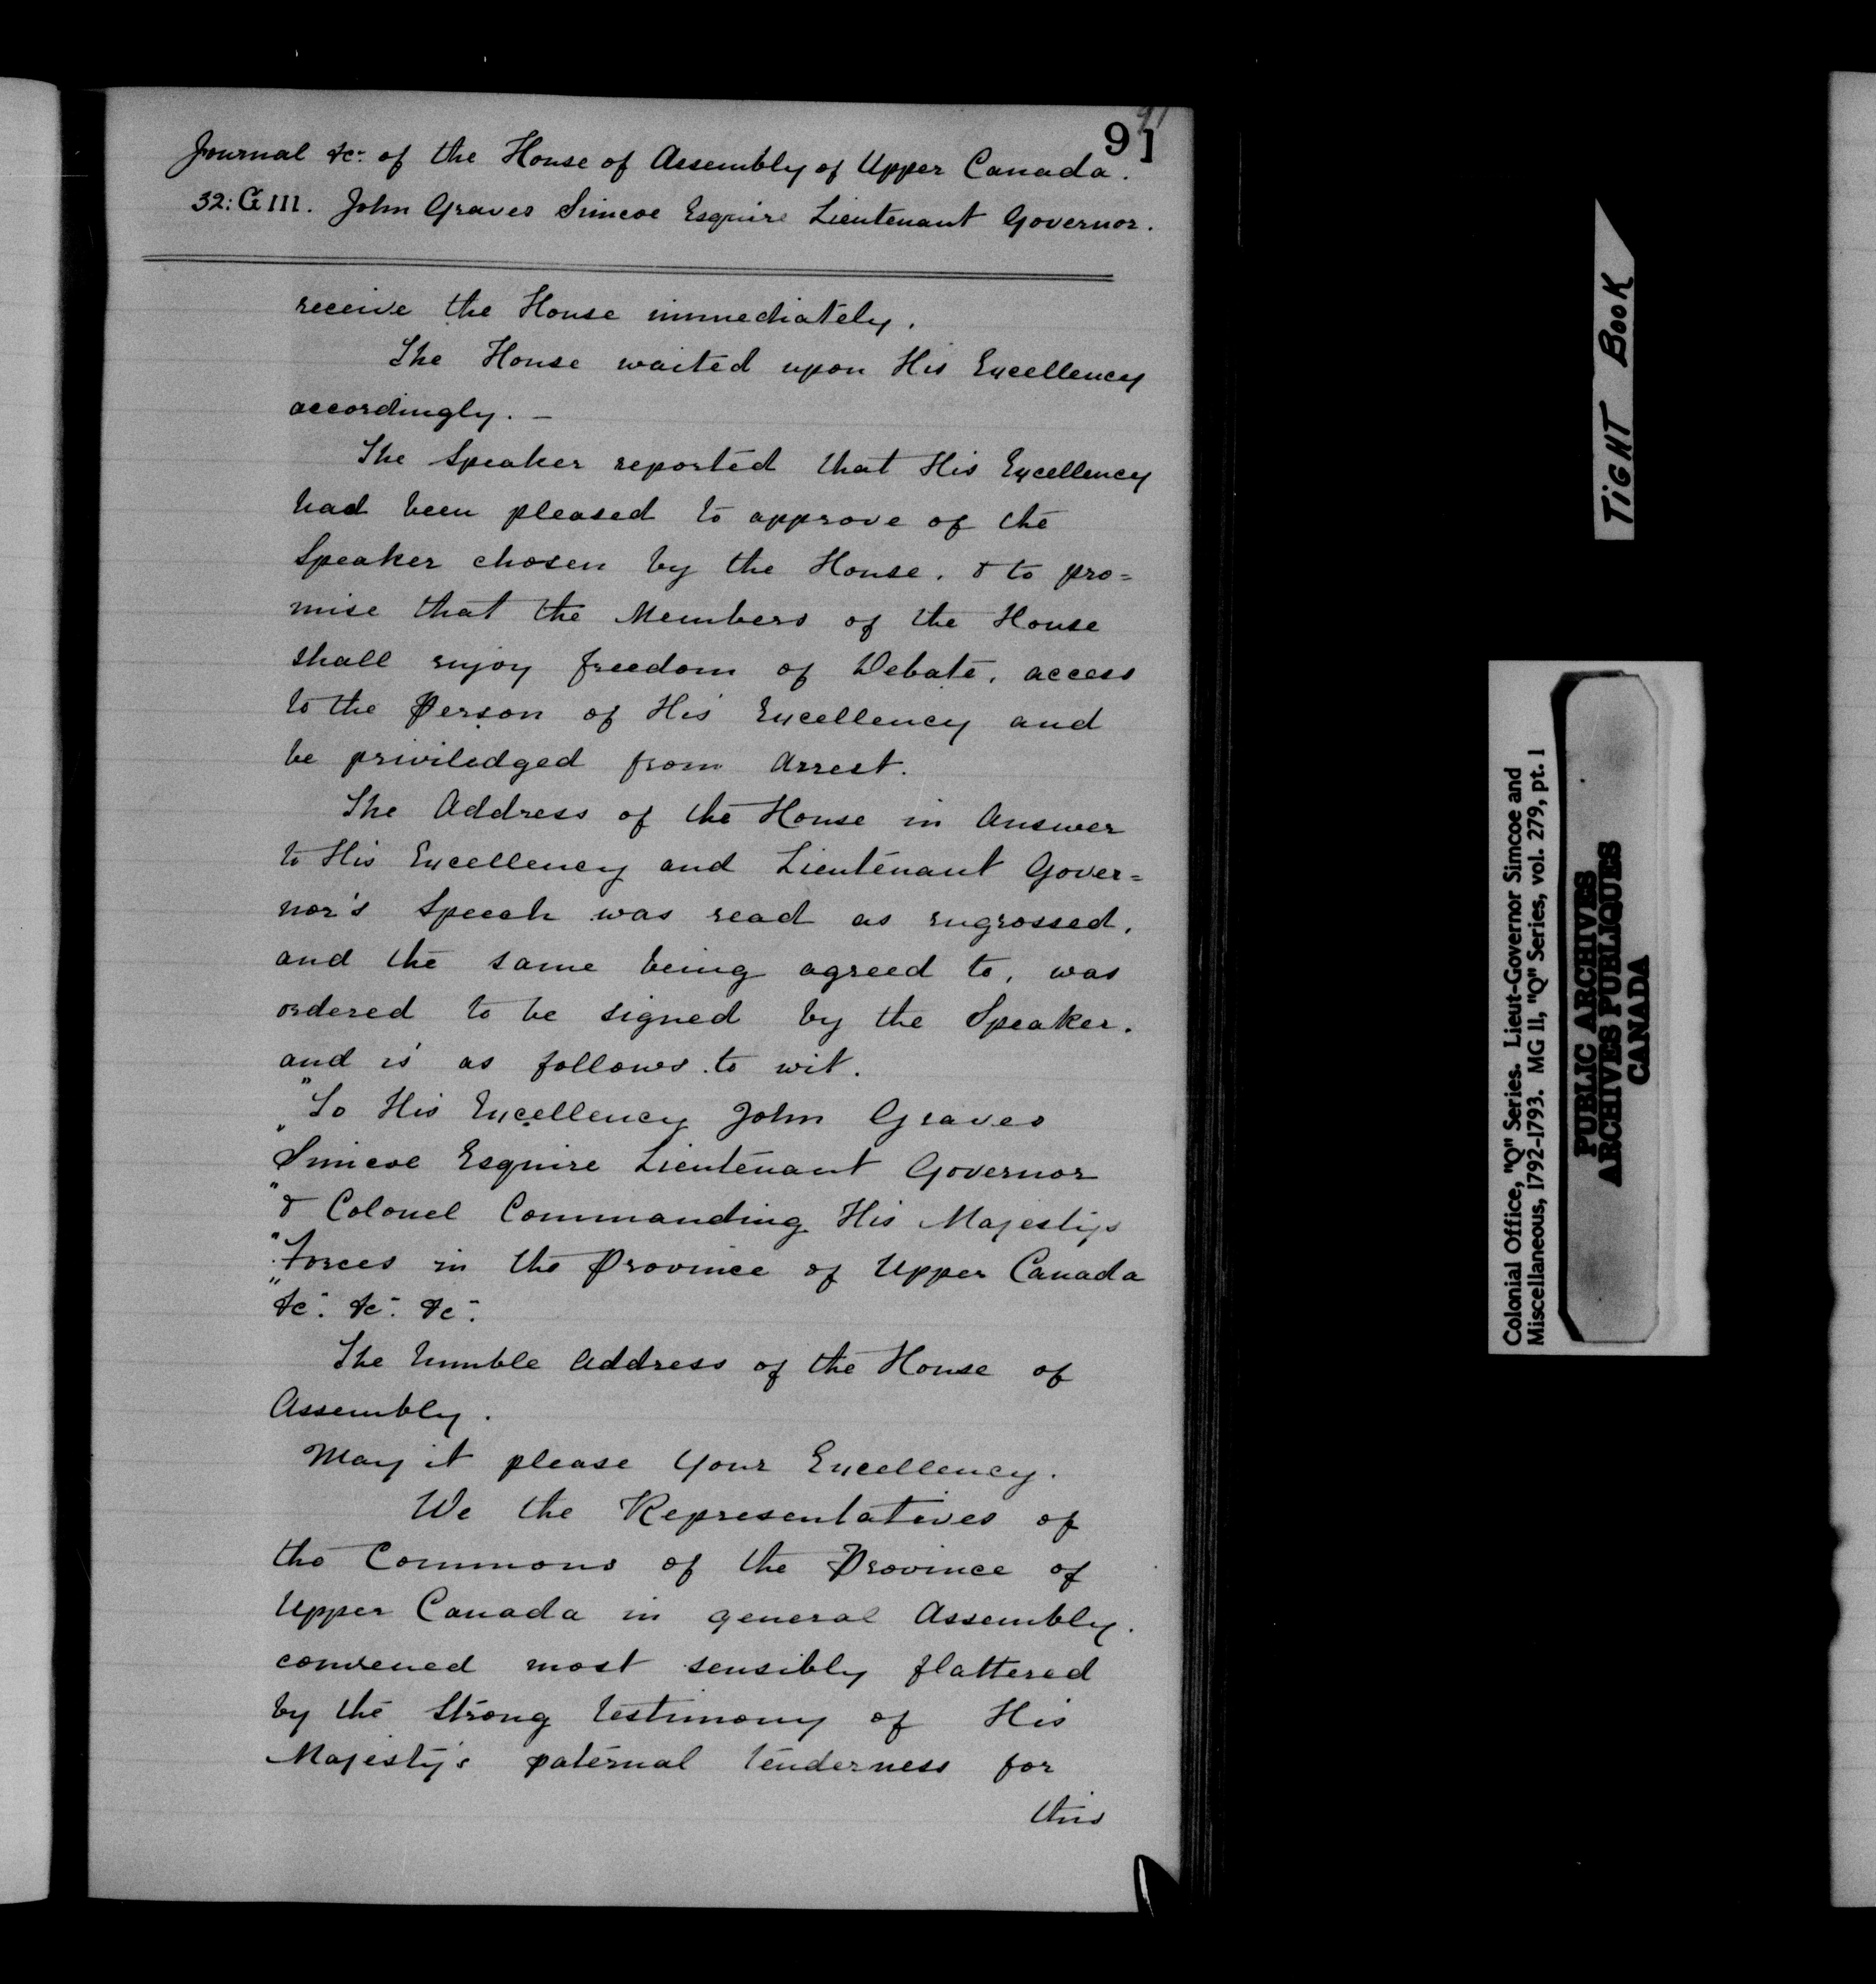 91
91
Journal &c: of the House of Assembly of Upper Canada.
32: G III. John Graves Simcoe Esquire Lieutenant Governor.
receive the House immediately.
The House waited upon His Excellency
accordingly. –
The Speaker reported that His Excellency
had been pleased to approve of the
Speaker chosen by the House. & to pro=
mise that the Members of the House
shall enjoy freedom of Debate, access
to the Person of His Excellency and
be priviledged from Arrest.
The Address of the House in Answer
to His Excellency and Lieutenant Gover=
nor's Speech was read as engrossed,
and the same being agreed to, was
ordered to be signed by the Speaker.
and is as follows. to wit.
"To His Excellency John Graves
"Simcoe Esquire Lieutenant Governor
"& Colonel Commanding His Majestys
"Forces in the Province of Upper Canada
"&c: &c: &c:
The humble Address of the House of
Assembly.
May it please Your Excellency.
We the Representatives of
the Commons of the Province of
Upper Canada in general Assembly.
convened most sensibly flattered
by the strong testimony of His
Majesty's paternal tenderness for
this
TIGHT BOOK
Colonial Office, "Q" Series. Lieut-Governor Simcoe and
Miscellaneous, 1792-1793. MG 11, "Q" Series, vol. 279, pt. 1
PUBLIC ARCHIVES
ARCHIVES PUBLIQUES
CANADA